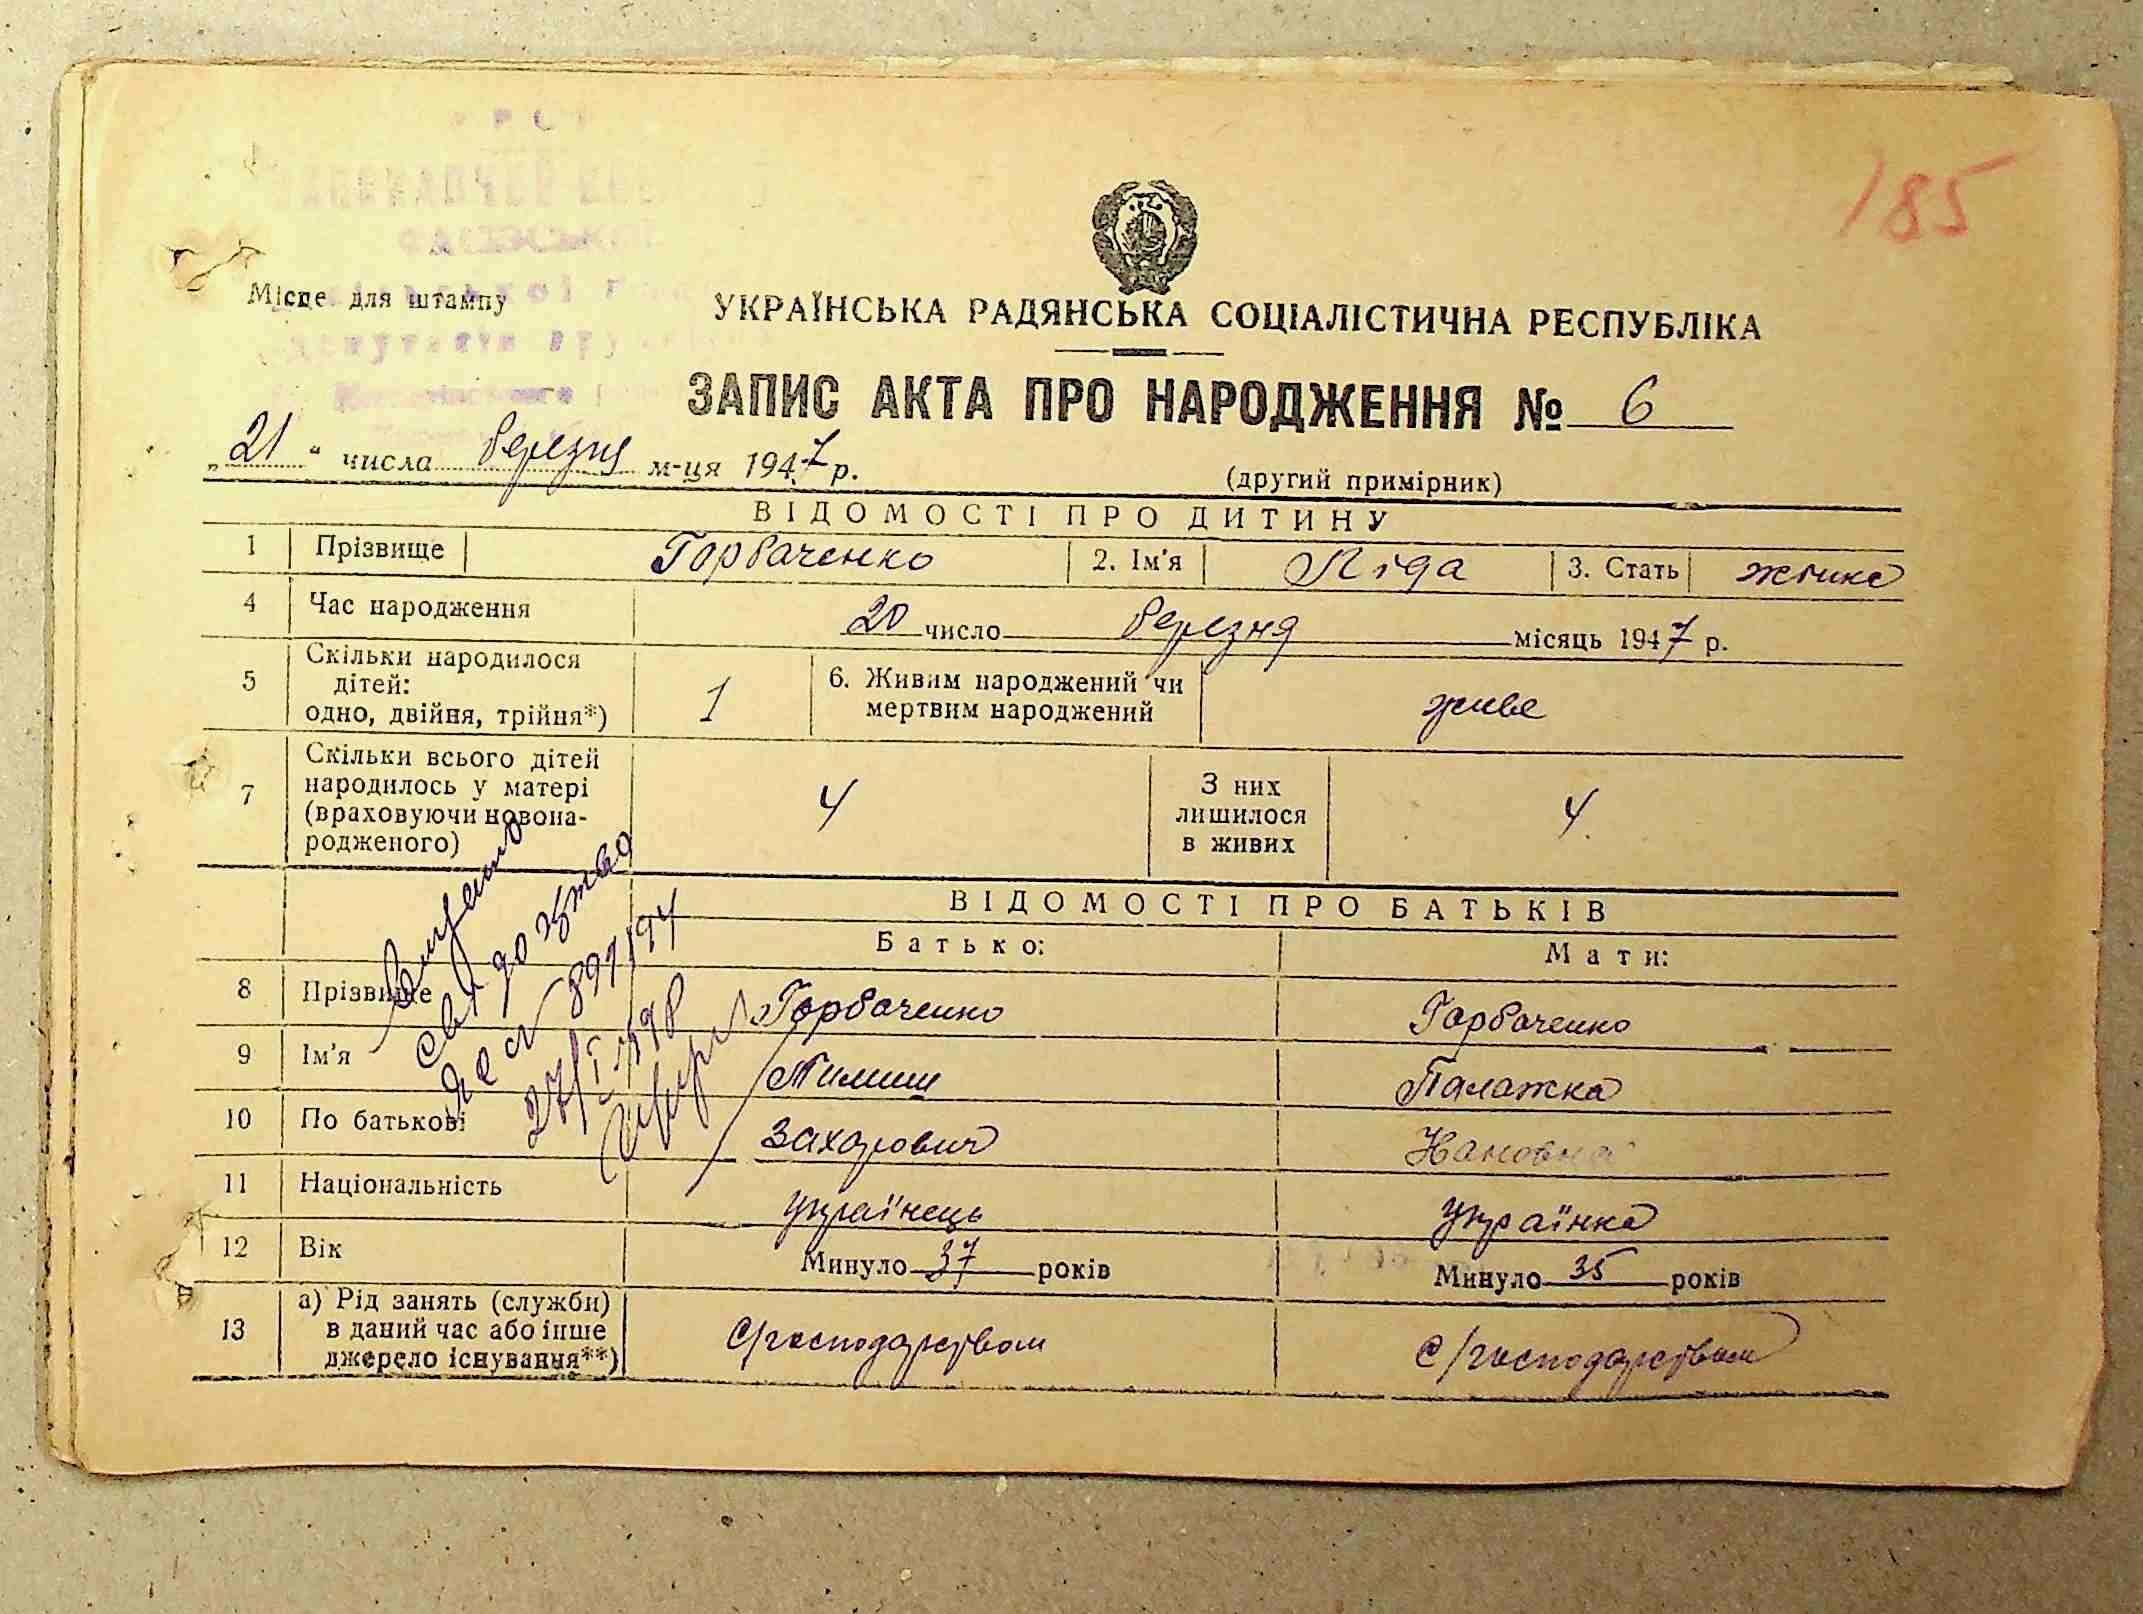 185
Місце для штампу
УКРАЇНСЬКА РАДЯНСЬКА СОЦІАЛІСТИЧНА РЕСПУБЛІКА
ЗАПИС АКТА ПРО НАРОДЖЕННЯ № 6
„21“ числа березня м-ця 1947 р.
(другий примірник)
ВІДОМОСТІ ПРО ДИТИНУ
1 Прізвище Горбаченко 2. Ім'я Ліда 3. Стать жіика
4 Час народження 20 число березня місяць 1947 р.
5 Скільки народилося дітей: одно, двійня, трійня*) 1 6. Живим народжений чи мертвим народжений живе
7 Скільки всього дітей народилось у матері (враховуючи новонародженого) 4 З них лишилося в живих 4
ВІДОМОСТІ ПРО БАТЬКІВ
Батько: Мати:
8 Прізвище Горбаченко Горбаченко
9 Ім'я Палажка
10 По батькові Захарович
11 Національність українець українка
12 Вік Минуло 37 років Минуло 35 років
13 а) Рід занять (служби) в даний час або інше джерело існування**) С/господарством с/господарством